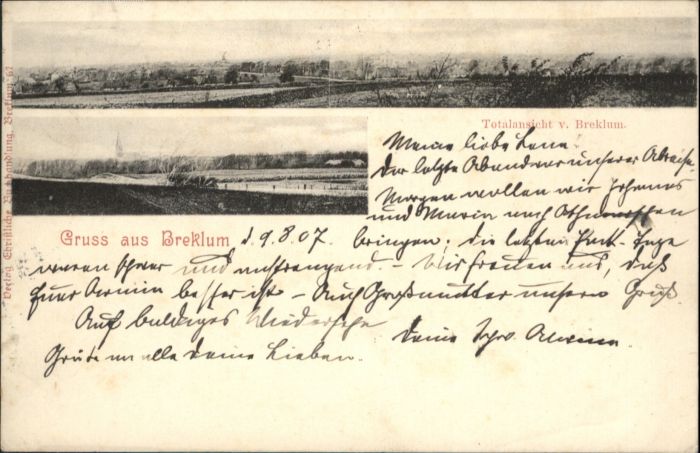 Totalansicht v. Breklum.
Meine liebe Lene!
Der letzte Abend vor unserer Abreise.
Morgen wollen wir Johannes
und Maria nach
Gruss aus Breklum, d. 9.8.07.
bringen; die letzten Tage
waren schwer und anstrengend. – Wir freuen uns, daß
Eurer Armin besser ist – Auch Großmutter unsern Gruß.
Auf baldiges Wiedersehn
Deine Schw. Alwine.
Grüße an alle Deine Lieben.
Verlag Christliche Buchhandlung, Breklum. 67